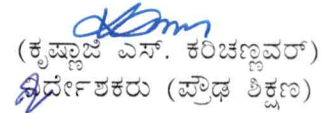 (ಕೃಷ್ಣಾಜಿ ಎಸ್. ಕರಿಚಣ್ಣವರ್)
ನಿರ್ದೇಶಕರು (ಪ್ರೌಢ ಶಿಕ್ಷಣ)